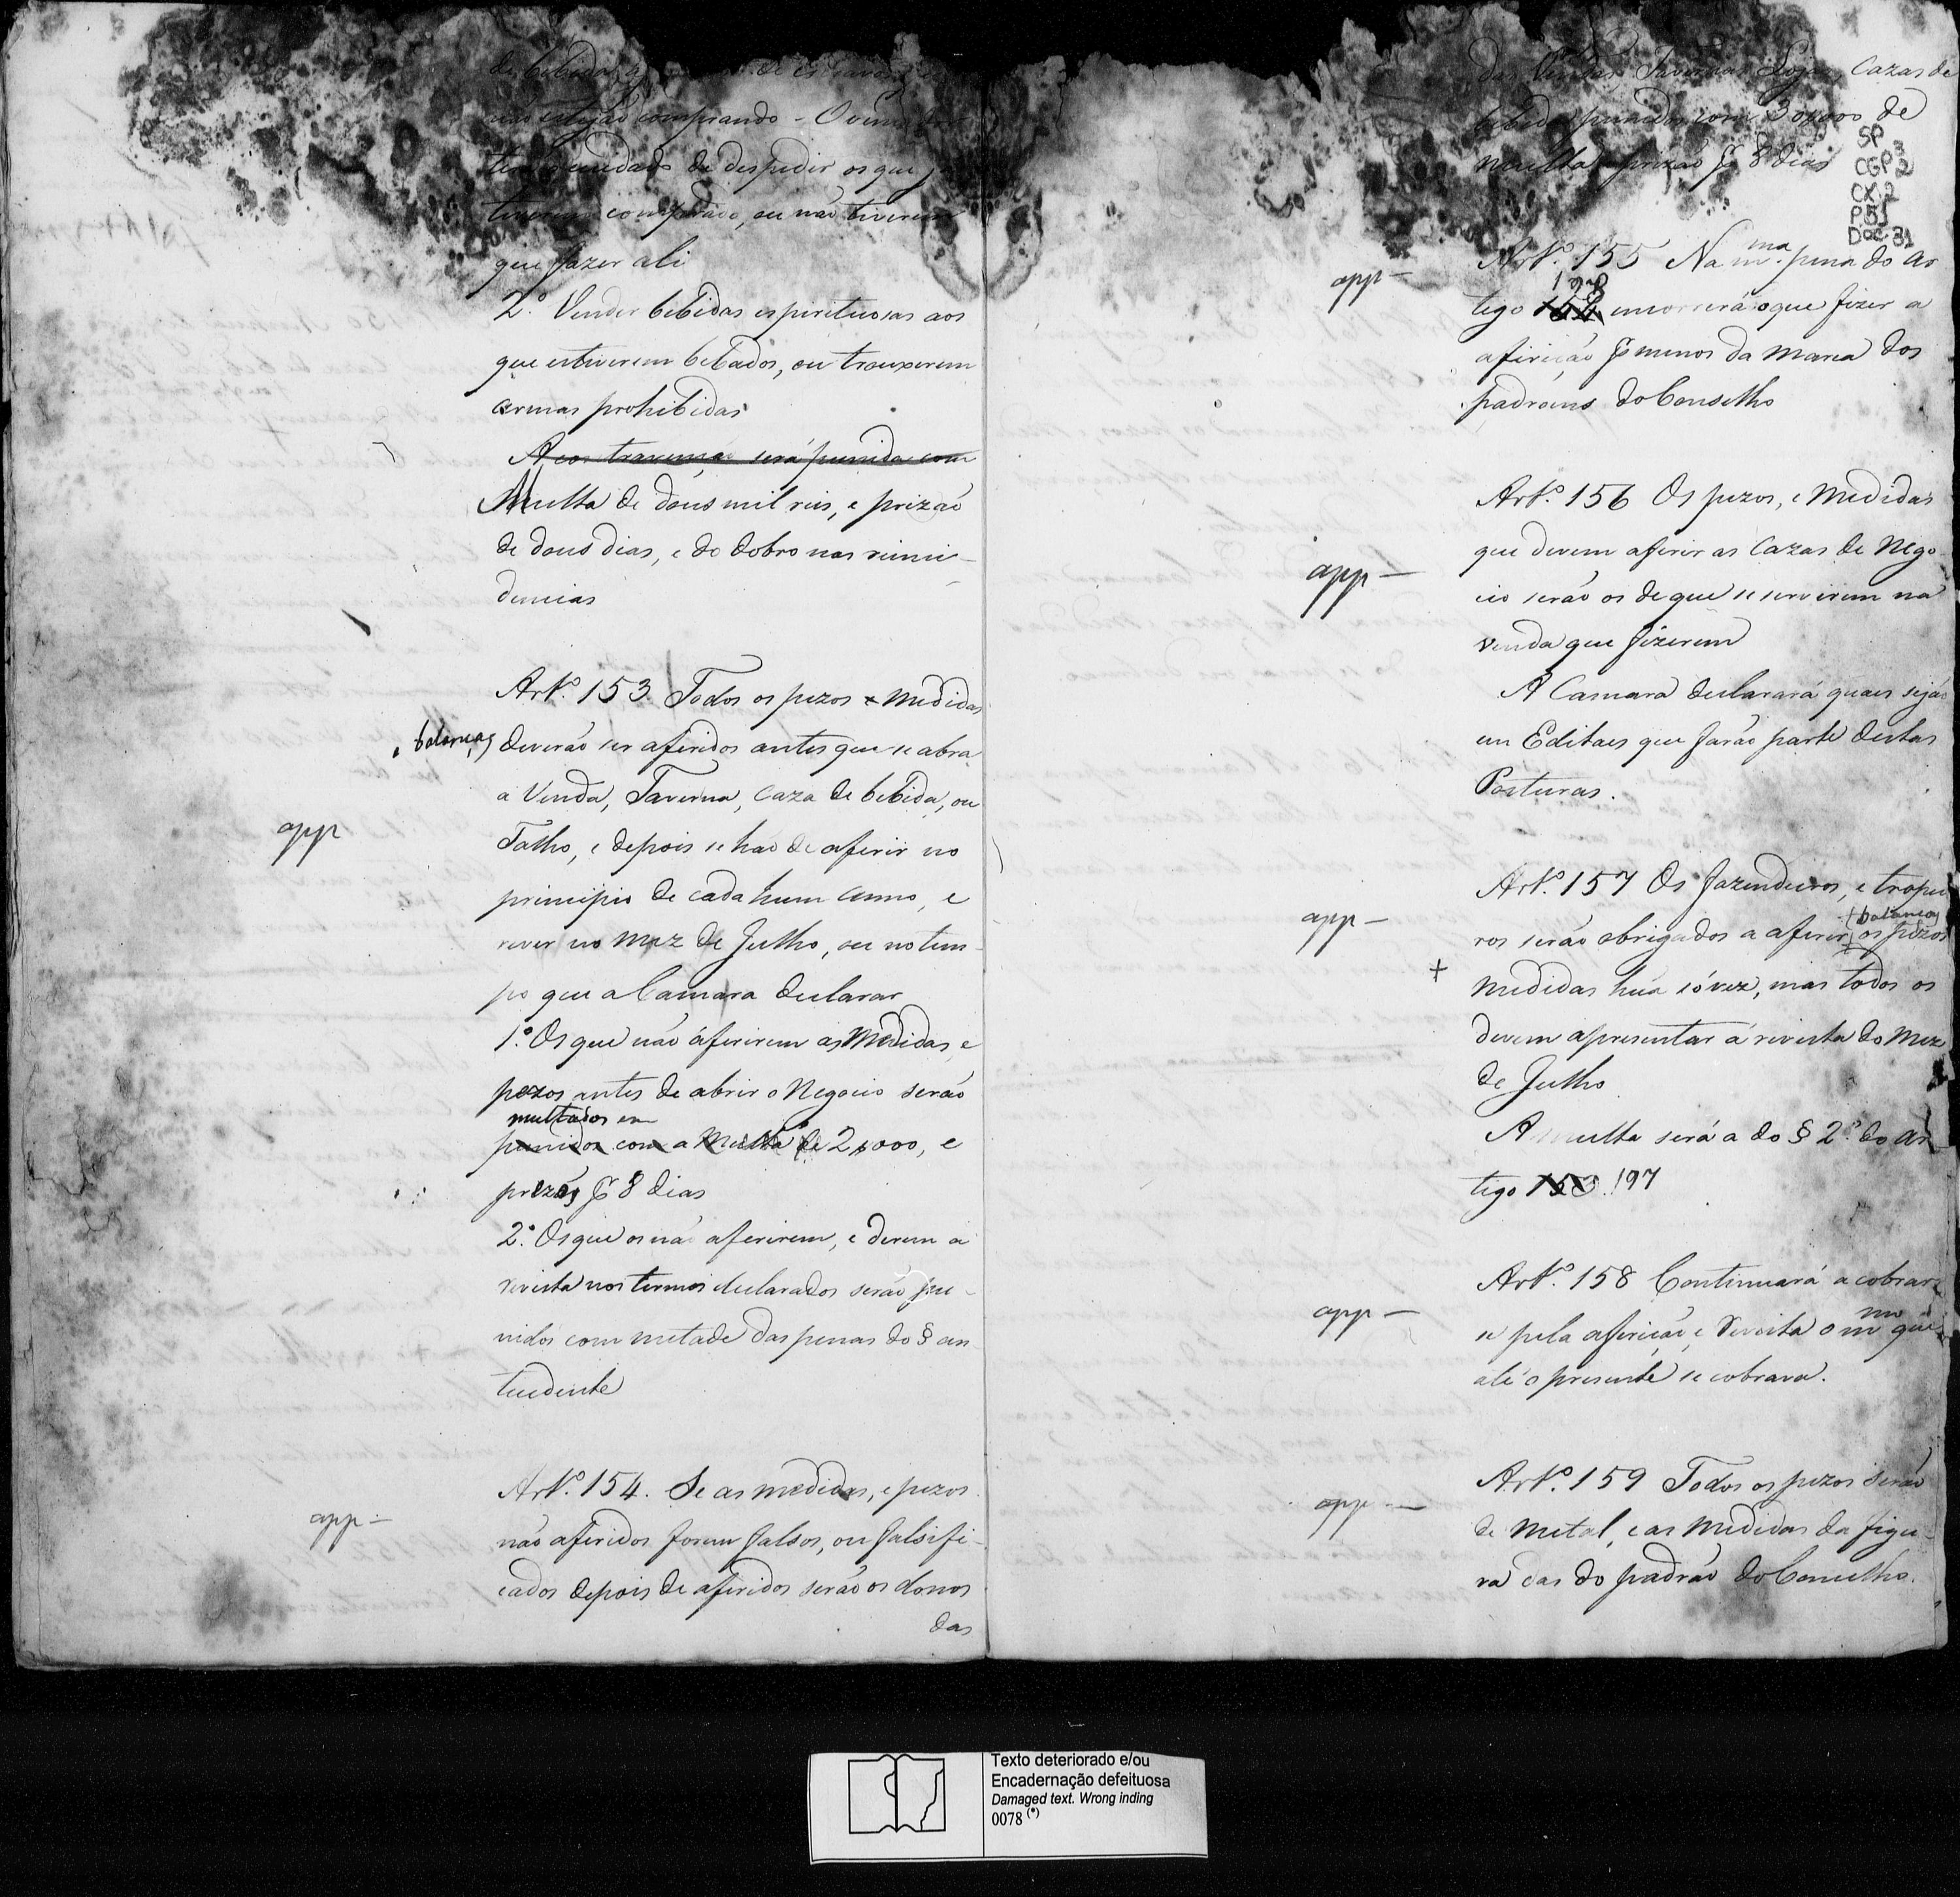 de bebida
não estejão comprando - O vende
terá cuidado de despedir os que j
tiverem comprado, ou não tiverem
que fazer ali
2.º Vender bebidas espirituosas aos
que estiverem bebados, ou trouxerem
armas prohibidas
A contravenção será punida com
Multa de dous mil reis, e prizaõ
de dous dias, e do dobro nas reinci-
dencias
Artº. 153 Todos os pezos e medidas
e balanças deverão ser aferidos antes que se abra
a Venda, Taverna, Caza de bebida, ou
app
Talho, e depois se hão de aferir no
principio de cada hum anno, e
rever no mez de Julho, ou no tem-
po que a Camara declarar
1.º Os que não aferirem as Medidas, e
pezos antes de abrir o Negocio serão
multados em
punidos com a Multa de 2$000, e
prizão pr 8 dias
2.º Os que os não aferirem, e derem a
revista nos termos declarados serão pu-
nidos com metade das penas do § an
tecedente
Artº. 154. Se as medidas, e pezos
app -
não aferidos forem falsos, ou falsifi-
cados depois de aferidos serão os donos
das
das Vendas, Tavernas, Lojas, Cazas de
bebida punidos com 30$000 de
multa e prizão pr 8 dias
SP
CGP3
CX.2
P51
DOC.31
app -
Artº. 155 Na mma. pena do ar
198
tigo 154 encorrerá o que fizer a
afirição pr menos da marca dos
padroens do Conselho
Artº. 156 Os pezos, e Medidas
que devem aferir as Cazas de Nego
app -
cio serão os de que se servirem na
venda que fizerem
A Camara declarará quaes sejão
em Editaes que farão parte destas
Posturas.
Artº. 157 Os fazendeiros, e tropei
app -
+ balanças
ros serão obrigados a aferir os pezos
+
medidas hũa só vez, mas todos os
devem apresentar á revista do Mez
de Julho
A multa será a do § 2.º do ar
tigo 153. 197
Artº. 158 Continuará a cobrar
app -
se pela aferição, e Revista o mmo que
até o presente se cobrava.
Artº. 159 Todos os pezos serão
app -
de Metal, e as Medidas da figu-
ra das do padrão do Conselho.
Texto deteriorado e/ou
Encadernação defeituosa
Damaged text. Wrong inding
0078 (*)